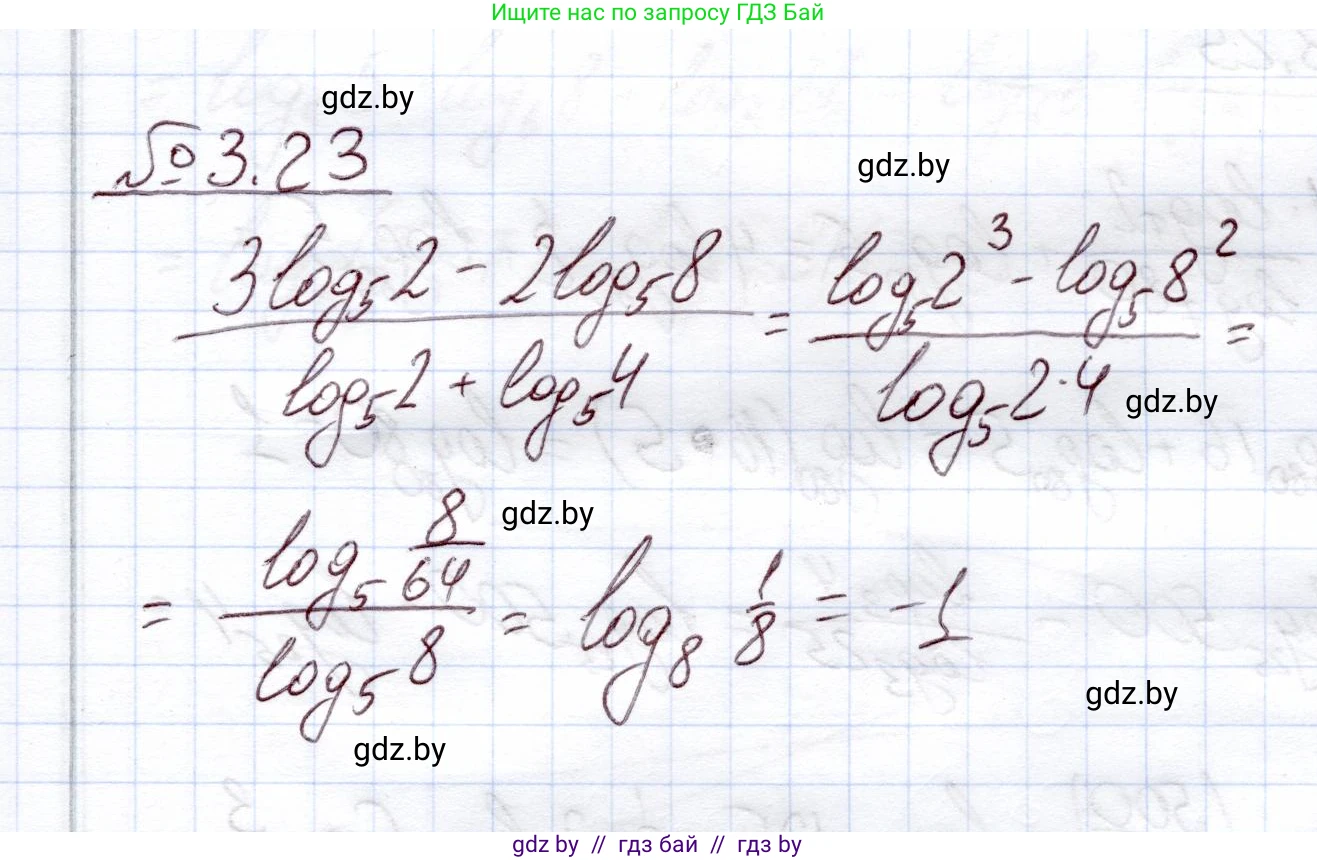 Ищите нас по запросу ГДЗ Бай
gdz.by
№ 3.23
gdz.by
(3log₅2 - 2log₅8) / (log₅2 + log₅4) = (log₅2³ - log₅8²) / (log₅2·4) =
gdz.by
gdz.by
= (log₅ 8/64) / (log₅8) = log₈ 1/8 = -1
gdz.by
gdz.by
gdz by // гдз бай // гдз by